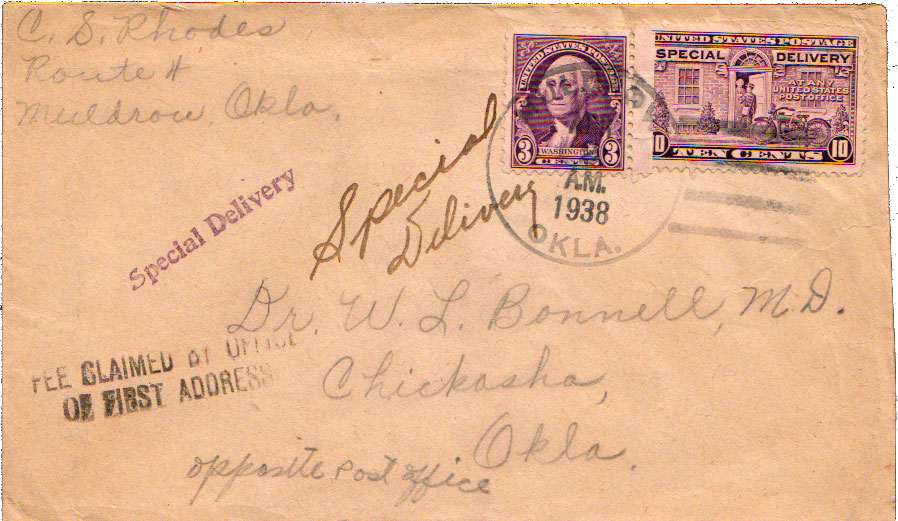 C. S. Rhodes
Route #
Muldrow, Okla.
UNITED STATES POSTAGE
3 WASHINGTON 3
CENTS
UNITED STATES POSTAGE
SPECIAL DELIVERY
AT ANY
UNITED STATES
POST OFFICE
10 TEN CENTS 10
A.M.
1938
OKLA.
Special Delivery
Special
Delivery
Dr. W. L. Bonnell, M.D.
Chickasha,
Okla.
FEE CLAIMED BY OFFICE
OF FIRST ADDRESS
opposite post office